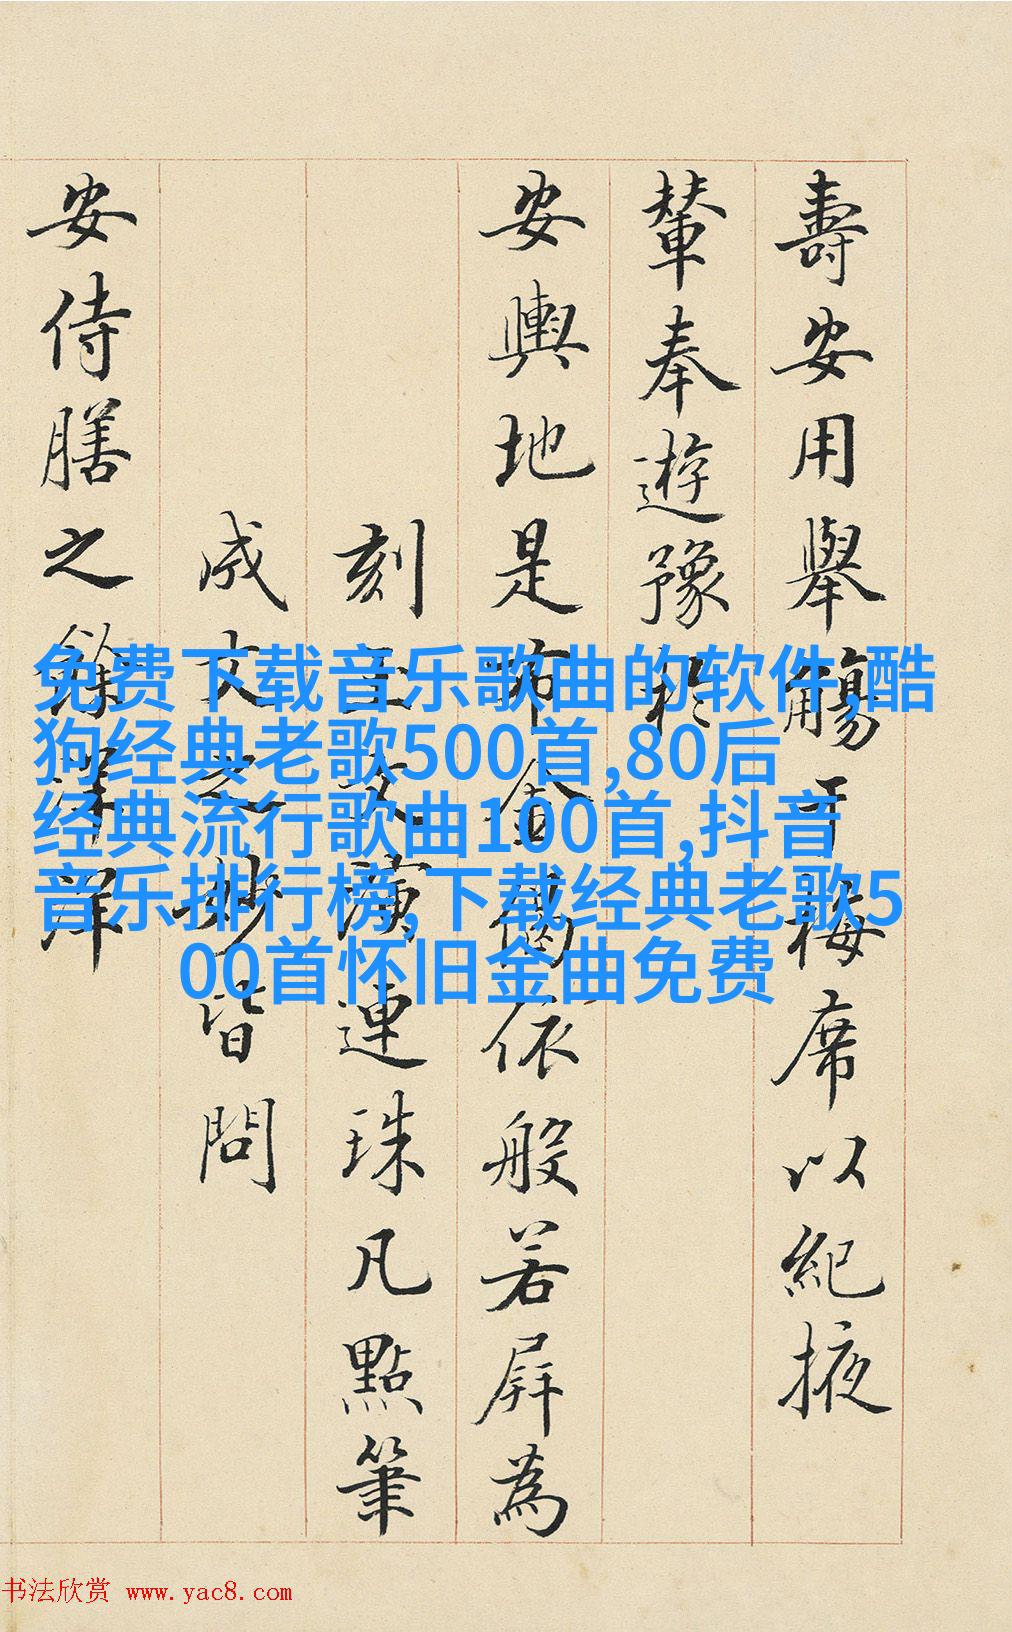 壽安用舉觴于梅席以紀掖
輦奉遊豫於
安輿地是布金偈依般若屏為
刻玉文演連珠凡點筆
成文之妙皆問
安侍膳之餘
免费下载音乐歌曲的软件,酷
狗经典老歌500首,80后
经典流行歌曲100首,抖音
音乐排行榜,下载经典老歌5
00首怀旧金曲免费
书法欣赏 www.yac8.com